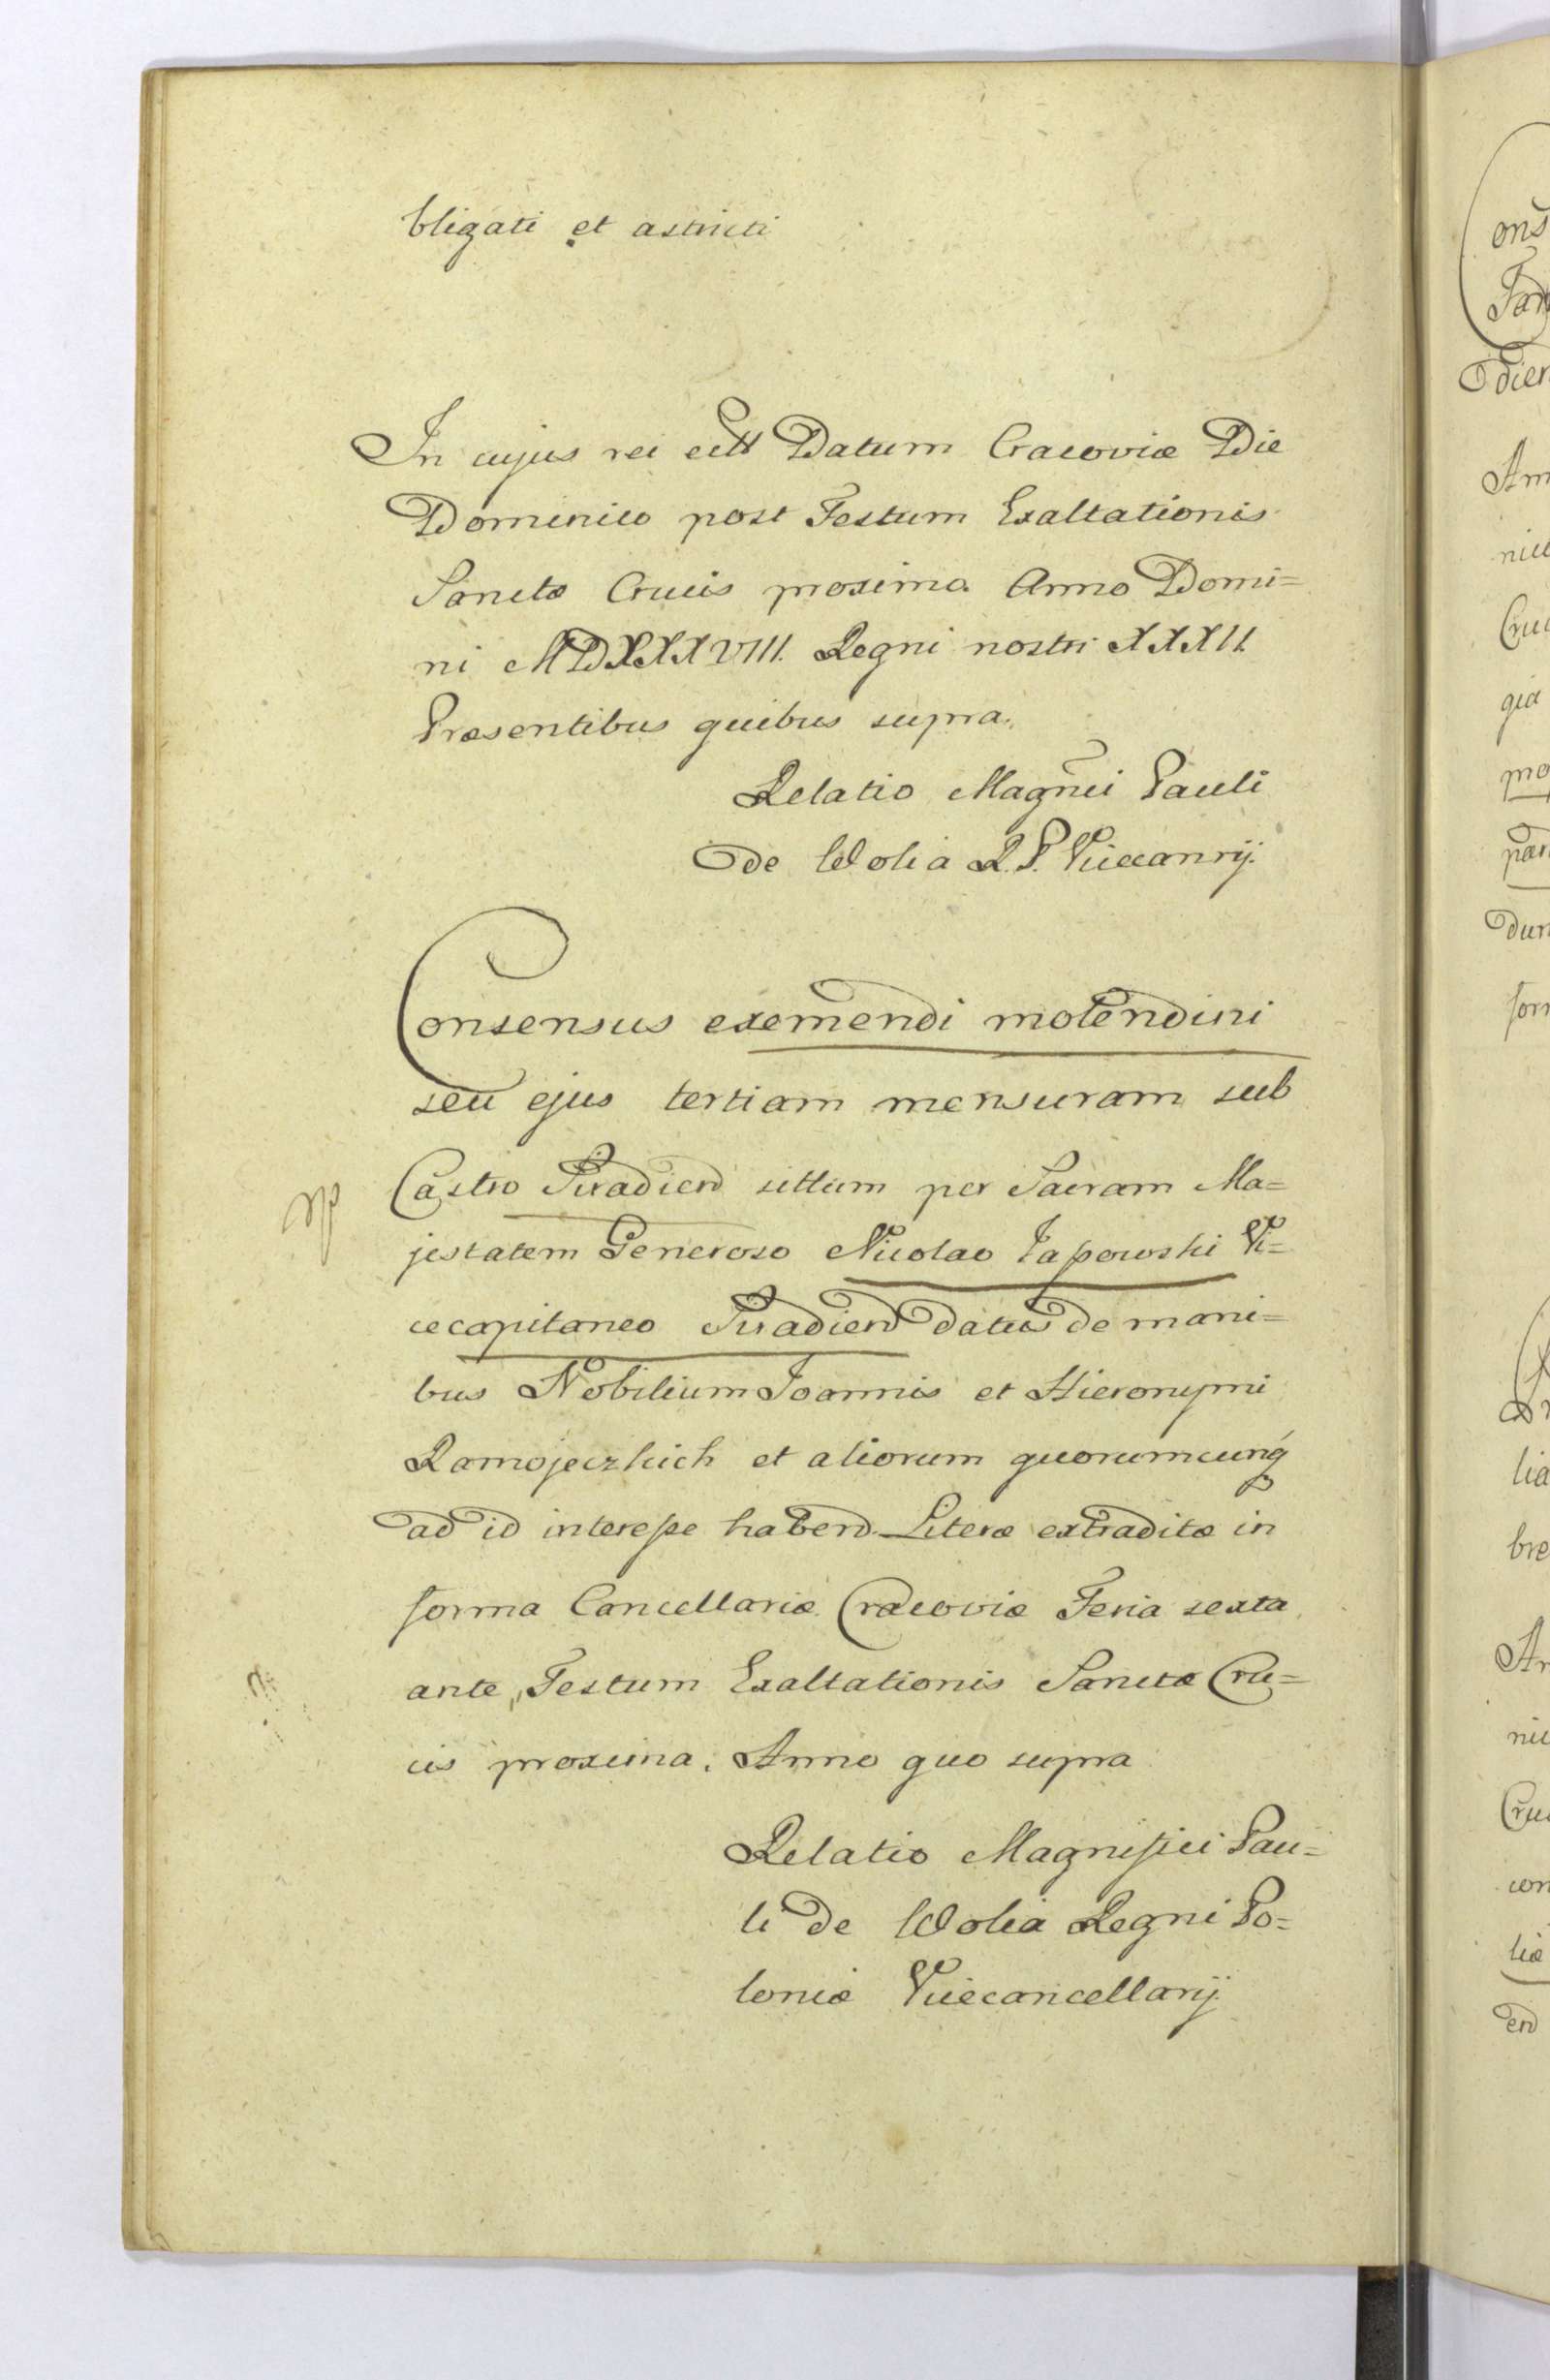 bligati et astricti
In cujus rei ectt Datum Cracoviæ Die
Dominico post Festum Exaltationis
Sanctæ Crucis proxima Anno Domi=
ni MDXXXVIII. Regni nostri XXXII.
Præsentibus quibus supra.
Relatio Magnci Pauli
de Wolia R. P. Vicecanrij.
Consensus exemendi molendini
seu ejus tertiam mensuram sub
Castro Siradien sittum per Sacram Ma=
jestatem Generoso Nicolao Taszowski Vi=
cecapitaneo Siradien datus de mani=
bus Nobilium Joannis et Hieronymi
Ramojeczkich et aliorum quorumcunq
ad id interesse haben. Literæ extraditæ in
forma Cancellariæ Cracoviæ Feria sexta
ante Festum Exaltationis Sanctæ Cru=
cis proxima. Anno quo supra
Relatio Magnifici Pau=
li de Wolia Regni Po=
loniæ Vicecancellarij.